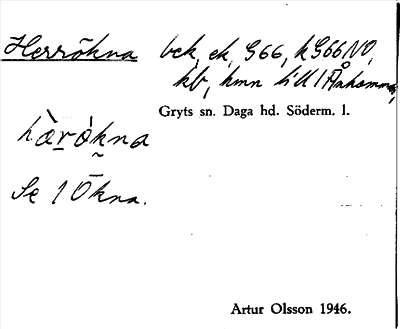 Herrökna bck, ek, G66, kG66NO,
kb, hmn till 1 Åkhammar,
Gryts sn. Daga hd. Söderm. l.
hæ̀rókna
Se 1 Ökna.
Artur Olsson 1946.